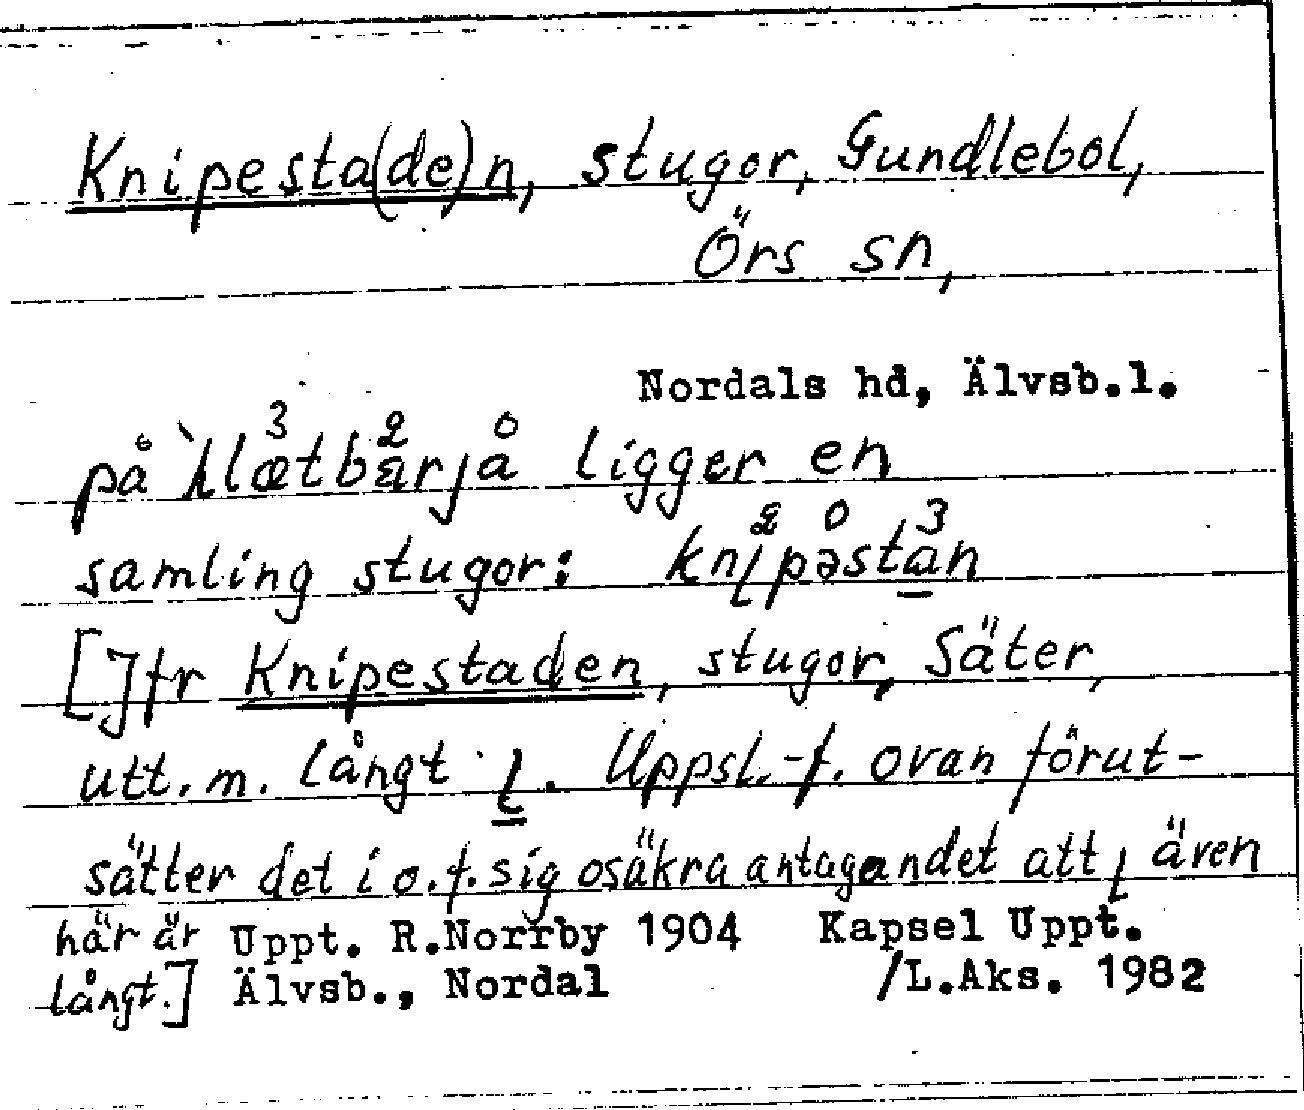 Knipesta(de)n, stugor, Gundlebol,
Örs sn,
Nordals hd, Älvsb.l.
på ligger en
samling stugor:
[Jfr Knipestaden, stugor, Säter,
utt. m. långt ɩ. Uppsl.-f. ovan förut-
sätter det i o. f. sig osäkra antagandet att ɩ även
här är Uppt. R.Norrby 1904 Kapsel Uppt.
långt.] Älvsb., Nordal /L.Aks. 1982